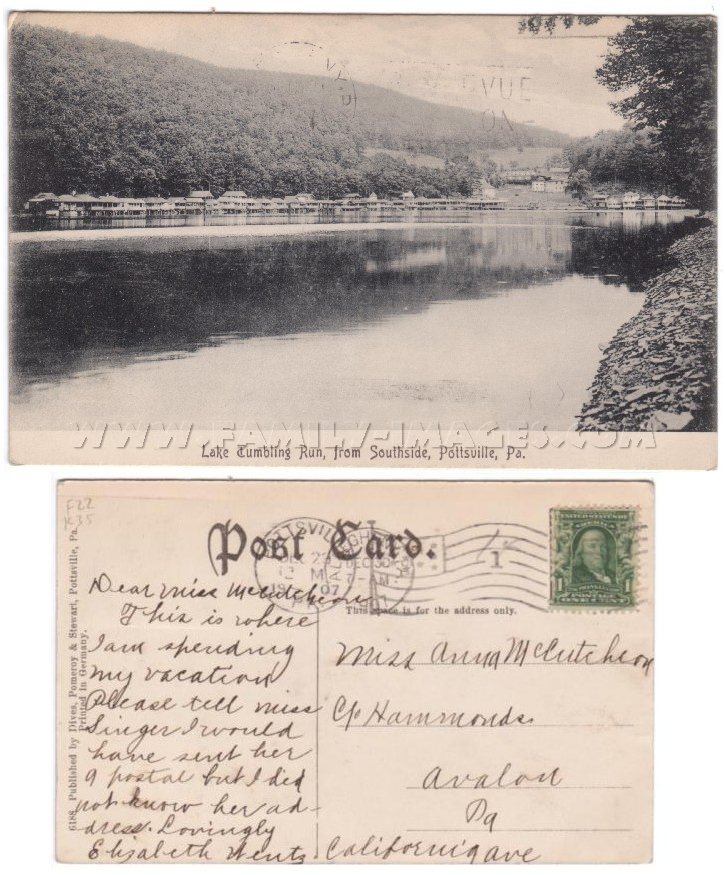 VUE
ON
WWW.FAMILY-IMAGES.COM
Lake Tumbling Run, from Southside, Pottsville, Pa.
F22
K35
Post Card.
POTTSVILLE
DEC 2
M
1907
PA
1
UNITED STATES OF AMERICA
1
This space is for the address only.
6188. Published by Dives, Pomeroy & Stewart, Pottsville, Pa.
Printed in Germany.
Dear Miss McCutcheon
This is where
I am spending
my vacation
Please tell Miss
Singer I would
have sent her
a postal but I did
not know her ad-
dress. Lovingly
Elizabeth Wentz
Miss Anna McCutcheon
C/o Hammonds
Avalon
Pa
California ave